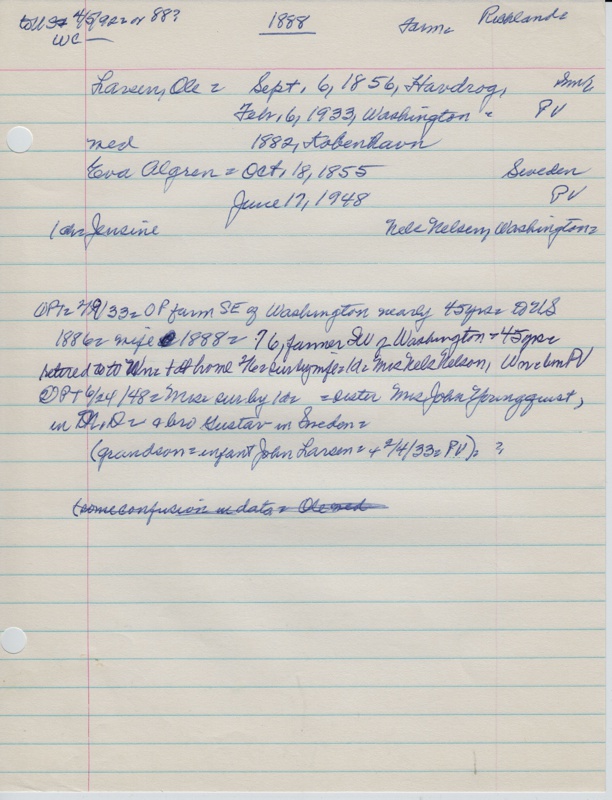 to US 4/5/92 or 88?
1888
Farm=
Richland=
WC —
Larsen, Ole = Sept. 6, 1856, Havdrog,
Febr. 6, 1933, Washington = PV
med 1882, Kobenhavn
Eva Algren = Oct. 18, 1855 Sweden
June 17, 1948 PV
1da= Jensine Nels Nelsen, Washington=
/33= OP farm SE of Washington nearly 45yrs= to US
1886= wife 1888= 76, farmer SW of Washington + 45yrs=
to at home He sur by wife= 1da= Mrs Nels Nelson, PV
6/24/48= Mrs= sur by 1da = sister Mrs John Youngquist,
in a bro Gustav in Sweden=
(grandson= infant John Larsen= + 2/4/33= PV). ?
(some confusion in data= Ole med